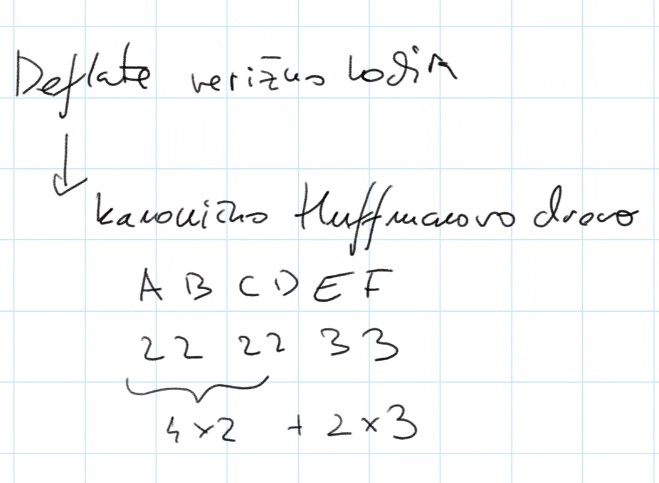 Deflate verižno kodira
↓
kanonično Huffmanovo drevo
A B C D E F
2 2 2 2 3 3
4 × 2 + 2 × 3